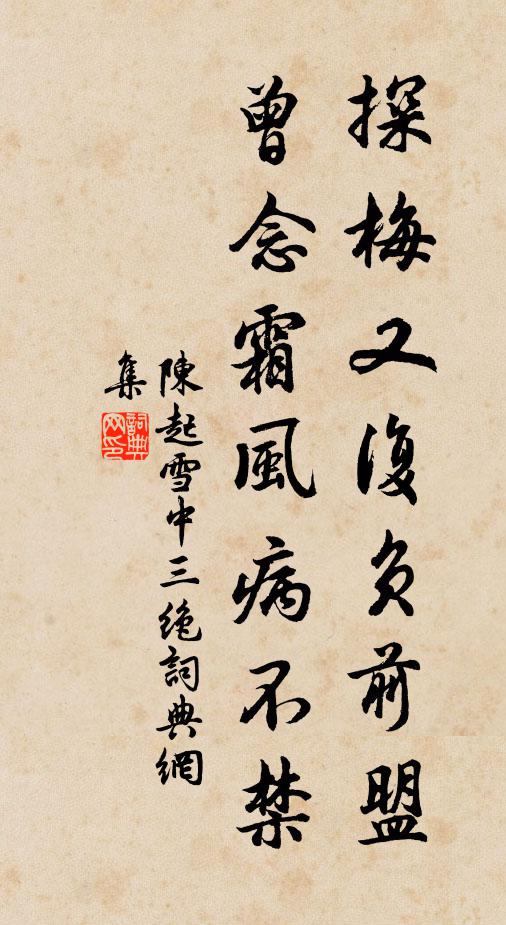 探梅又復負前盟
曾念霜風病不禁
陳起雪中三絶詞典網
集
詞典網印